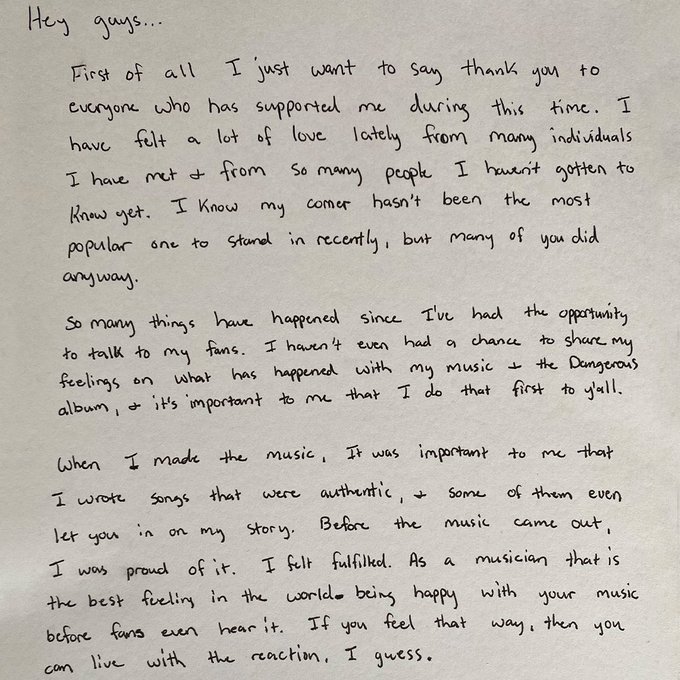 Hey guys...
First of all I just want to say thank you to
everyone who has supported me during this time. I
have felt a lot of love lately from many individuals
I have met & from so many people I haven't gotten to
know yet. I know my corner hasn't been the most
popular one to stand in recently, but many of you did
anyway.
So many things have happened since I've had the opportunity
to talk to my fans. I haven't even had a chance to share my
feelings on what has happened with my music & the Dangerous
album, & it's important to me that I do that first to y'all.
When I made the music, It was important to me that
I wrote songs that were authentic, & some of them even
let you in on my story. Before the music came out,
I was proud of it. I felt fulfilled. As a musician that is
the best feeling in the world- being happy with your music
before fans even hear it. If you feel that way, then you
can live with the reaction, I guess.